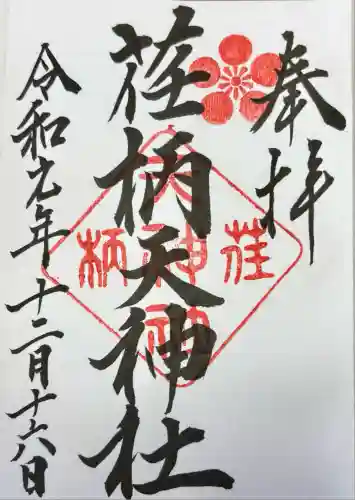 奉拝
荏柄天神社
令和元年十二月十六日